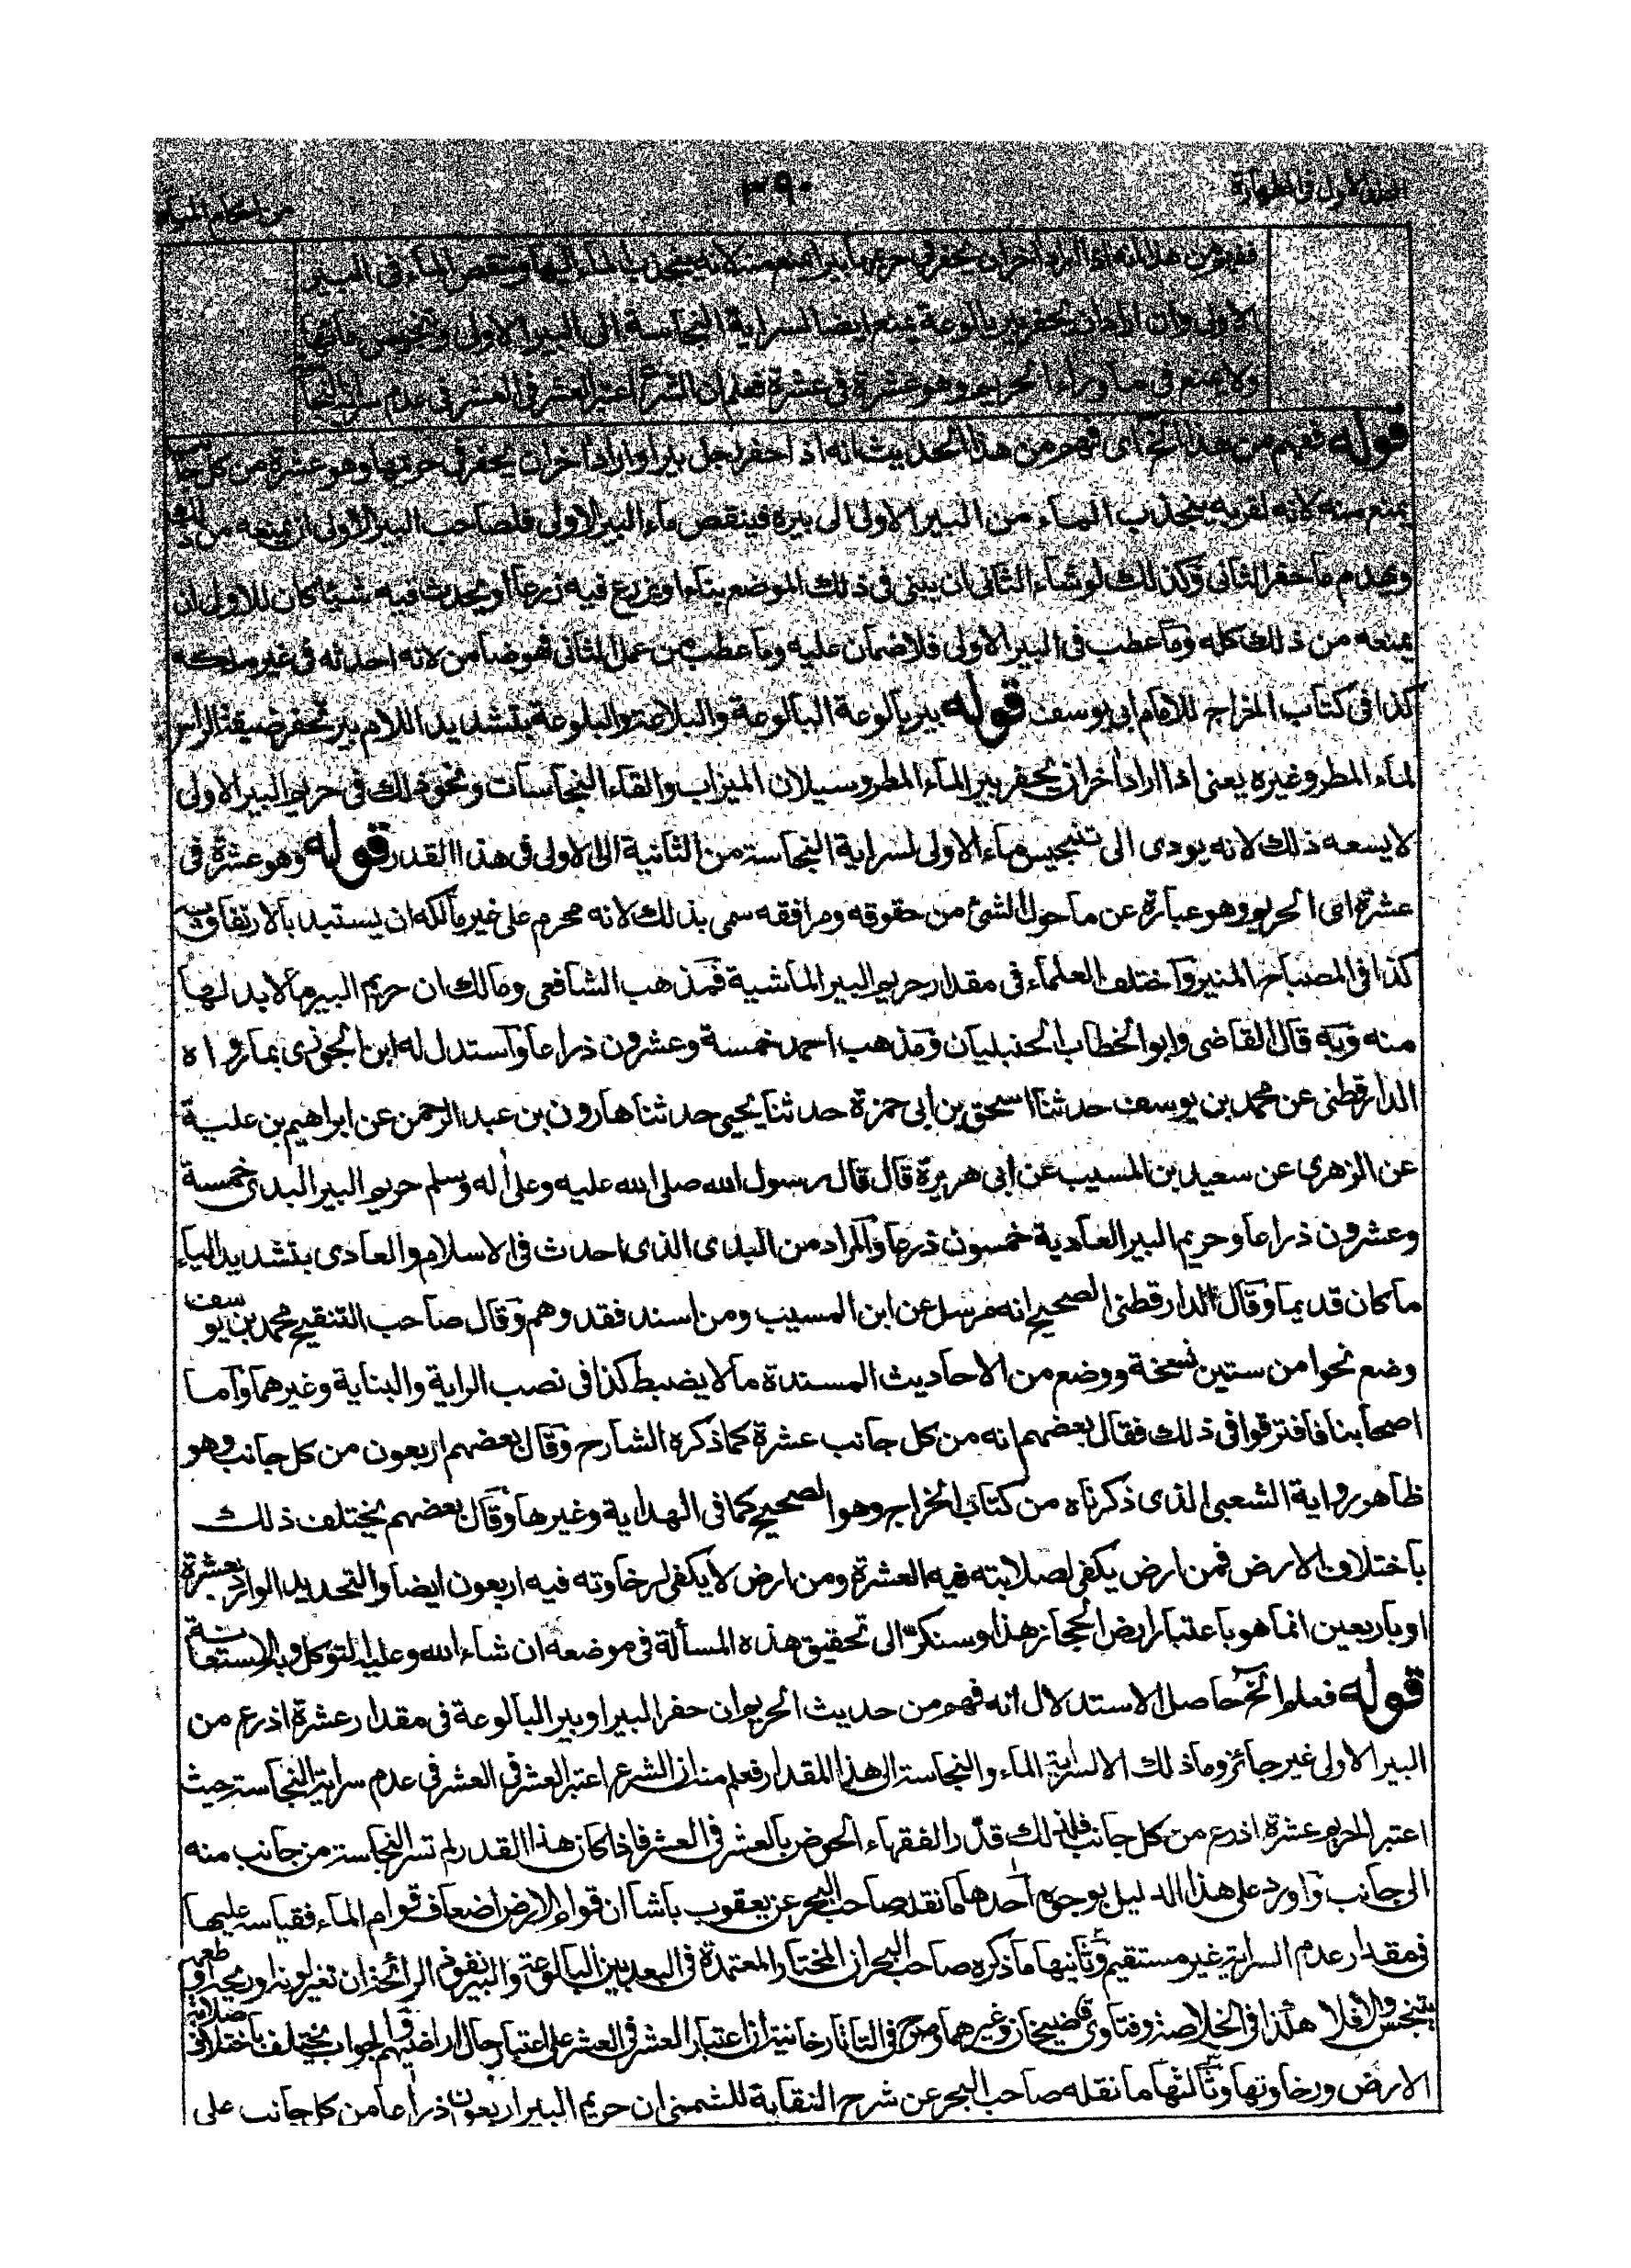 الجزء الاول فى الطهارة
٣٩٠
من احكام المياه
ففهم من هذا انه اذا اراد اخر ان يحفر فى حريمها بيرا يمنع منه لانه ينجذب الماء اليها وينقص الماء فى البير
الاولى وان اراد ان يحفر بير بالوعة يمنع ايضا لسراية النجاسة الى البير الاولى وتنجيس مائها
ولا يمنع فى ما وراء الحريم وهو عشرة فى عشرة فعلم ان الشرع اعتبر العشر فى العشر فى عدم سراية النجاسة
قوله ففهم من هذا الخ اى فهم من هذا الحديث انه اذا حفر رجل بيرا واراد اخر ان يحفر فى حريمها وهو عشرة من كل جانب
يمنع منه لانه لقربه ينجذب الماء من البير الاولى الى بيره فينقص ماء البير الاولى فلصاحب البير الاولى ان يمنعه من ذلك
ويهدم ما حفر الثانى وكذلك لو شاء الثانى ان يبنى فى ذلك الموضع بناء او يزرع فيه زرعا او يحدث فيه شيئا كان للاول ان
يمنعه من ذلك كله وما عطب فى البير الاولى فلا ضمان عليه وما عطب من عمل الثانى فهو ضامن لانه احدثه فى غير ملكه
كذا فى كتاب الخراج للامام ابى يوسف قوله بير بالوعة البالوعة والبلاعة والبلوعة بتشديد اللام بير تحفر ضيقة الراس
لماء المطر وغيره يعنى اذا اراد اخر ان يحفر بير الماء المطر وسيلان الميزاب والقاء النجاسات ونحو ذلك فى حريم البير الاولى
لا يسعه ذلك لانه يودى الى تنجيس ماء الاولى لسراية النجاسة من الثانية الى الاولى فى هذا القدر قوله وهو عشرة فى
عشرة اى الحريم وهو عبارة عن ما حول الشئ من حقوقه ومرافقه سمى بذلك لانه محرم على غير مالكه ان يستبد بالارتفاق به
كذا فى المصباح المنير واختلف العلماء فى مقدار حريم البير الماشية فمذهب الشافعى ومالك ان حريم البير ما لا بد لها
منه وبه قال القاضى وابو الخطاب الحنبليان ومذهب احمد خمسة وعشرون ذراعا واستدل له ابن الجوزى بما رواه
الدارقطنى عن محمد بن يوسف حدثنا اسحق بن ابى حمزة حدثنا يحيى حدثنا هارون بن عبد الرحمن عن ابراهيم بن علية
عن الزهرى عن سعيد بن المسيب عن ابى هريرة قال قال رسول الله صلى الله عليه وعلى آله وسلم حريم البير البدى خمسة
وعشرون ذراعا وحريم البير العادية خمسون ذرعا والمراد من البدى الذى احدث فى الاسلام والعادى بتشديد الياء
ما كان قديما وقال الدارقطنى الصحيح انه مرسل عن ابن المسيب ومن اسند فقد وهم وقال صاحب التنقيح محمد بن يوسف
وضع نحوا من ستين نسخة ووضع من الاحاديث المسندة ما لا يضبط كذا فى نصب الراية والبناية وغيرهما واما
اصحابنا فافترقوا فى ذلك فقال بعضهم انه من كل جانب عشرة كما ذكره الشارح وقال بعضهم اربعون من كل جانب وهو
ظاهر رواية الشعبى الذى ذكرناه من كتاب الخراج وهو الصحيح كما فى الهداية وغيرها وقال بعضهم يختلف ذلك
باختلاف الارض فمن ارض يكفى لصلابته فيه العشرة ومن ارض لا يكفى لرخاوته فيه اربعون ايضا والتحديد الوارد بعشرة
او باربعين انما هو باعتبار ارض الحجاز هذا وسنكر الى تحقيق هذه المسألة فى موضعه ان شاء الله وعليه التوكل وبه الاستعانة
قوله فعلم الخ حاصل الاستدلال انه فهم من حديث الحريم ان حفر البير او بير البالوعة فى مقدار عشرة اذرع من
البير الاولى غير جائز وما ذلك الا لسراية الماء والنجاسة الى هذا المقدار فعلم منه ان الشرع اعتبر العشر فى العشر فى عدم سراية النجاسة حيث
اعتبر الحريم عشرة اذرع من كل جانب فلذلك قدر الفقهاء الحوض بالعشر فى العشر فاذا كان هذا القدر لم تسر النجاسة من جانب منه
الى جانب واورد على هذا الدليل بوجوه احدها ما نقله صاحب البحر عن يعقوب باشا ان قوام الارض اضعاف قوام الماء فقياسه عليها
فى مقدار عدم السراية غير مستقيم وثانيها ما ذكره صاحب البحر ان المختار والمعتمد فى البعد بين البالوعة والبير نفوذ الرائحة ان تغير لونه او ريحه او طعمه
يتنجس والا فلا هكذا فى الخلاصة وفتاوى قاضيخان وغيرهما وصرح فى التاتارخانية ان اعتبار العشر فى العشر على اعتبار حال اراضيهم والجواب يختلف باختلاف صلابة
الارض ورخاوتها وثالثها ما نقله صاحب البحر عن شرح النقاية للشمنى ان حريم البير اربعون ذراعا من كل جانب على